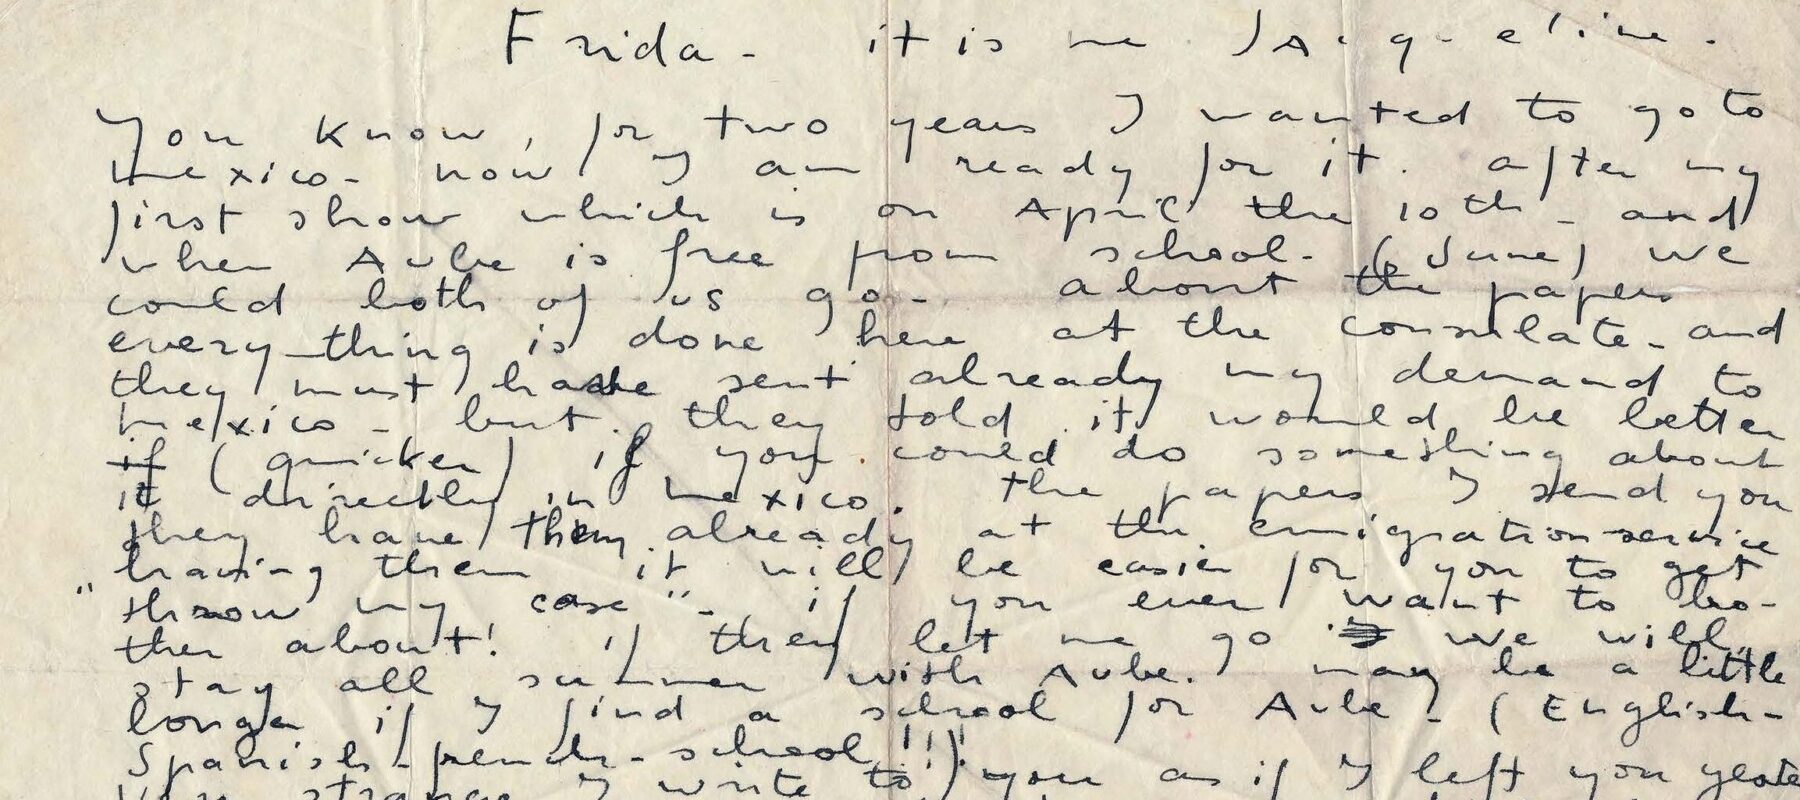 Frida - it is me Jacqueline.
You know, for two years I wanted to go to
mexico - now I am ready for it. after my
first show which is on April the 10th - and
when Aube is free from school. (June) we
could both of us go - about the papers
every-thing is done here at the consulate - and
they must have sent already my demand to
mexico - but they told it would be better
if (quicker) if you could do something about
it directly in mexico. the papers I send you
they have them already at the emigration service
having them it will be easier for you to get
"throw my case" - if you ever want to bo-
ther about! if they let me go we will
stay all summer with Aube. may be a little
longer if I find a school for Aube - (English-
Spanish-french-school!!!)
very strange I write to you as if I left you